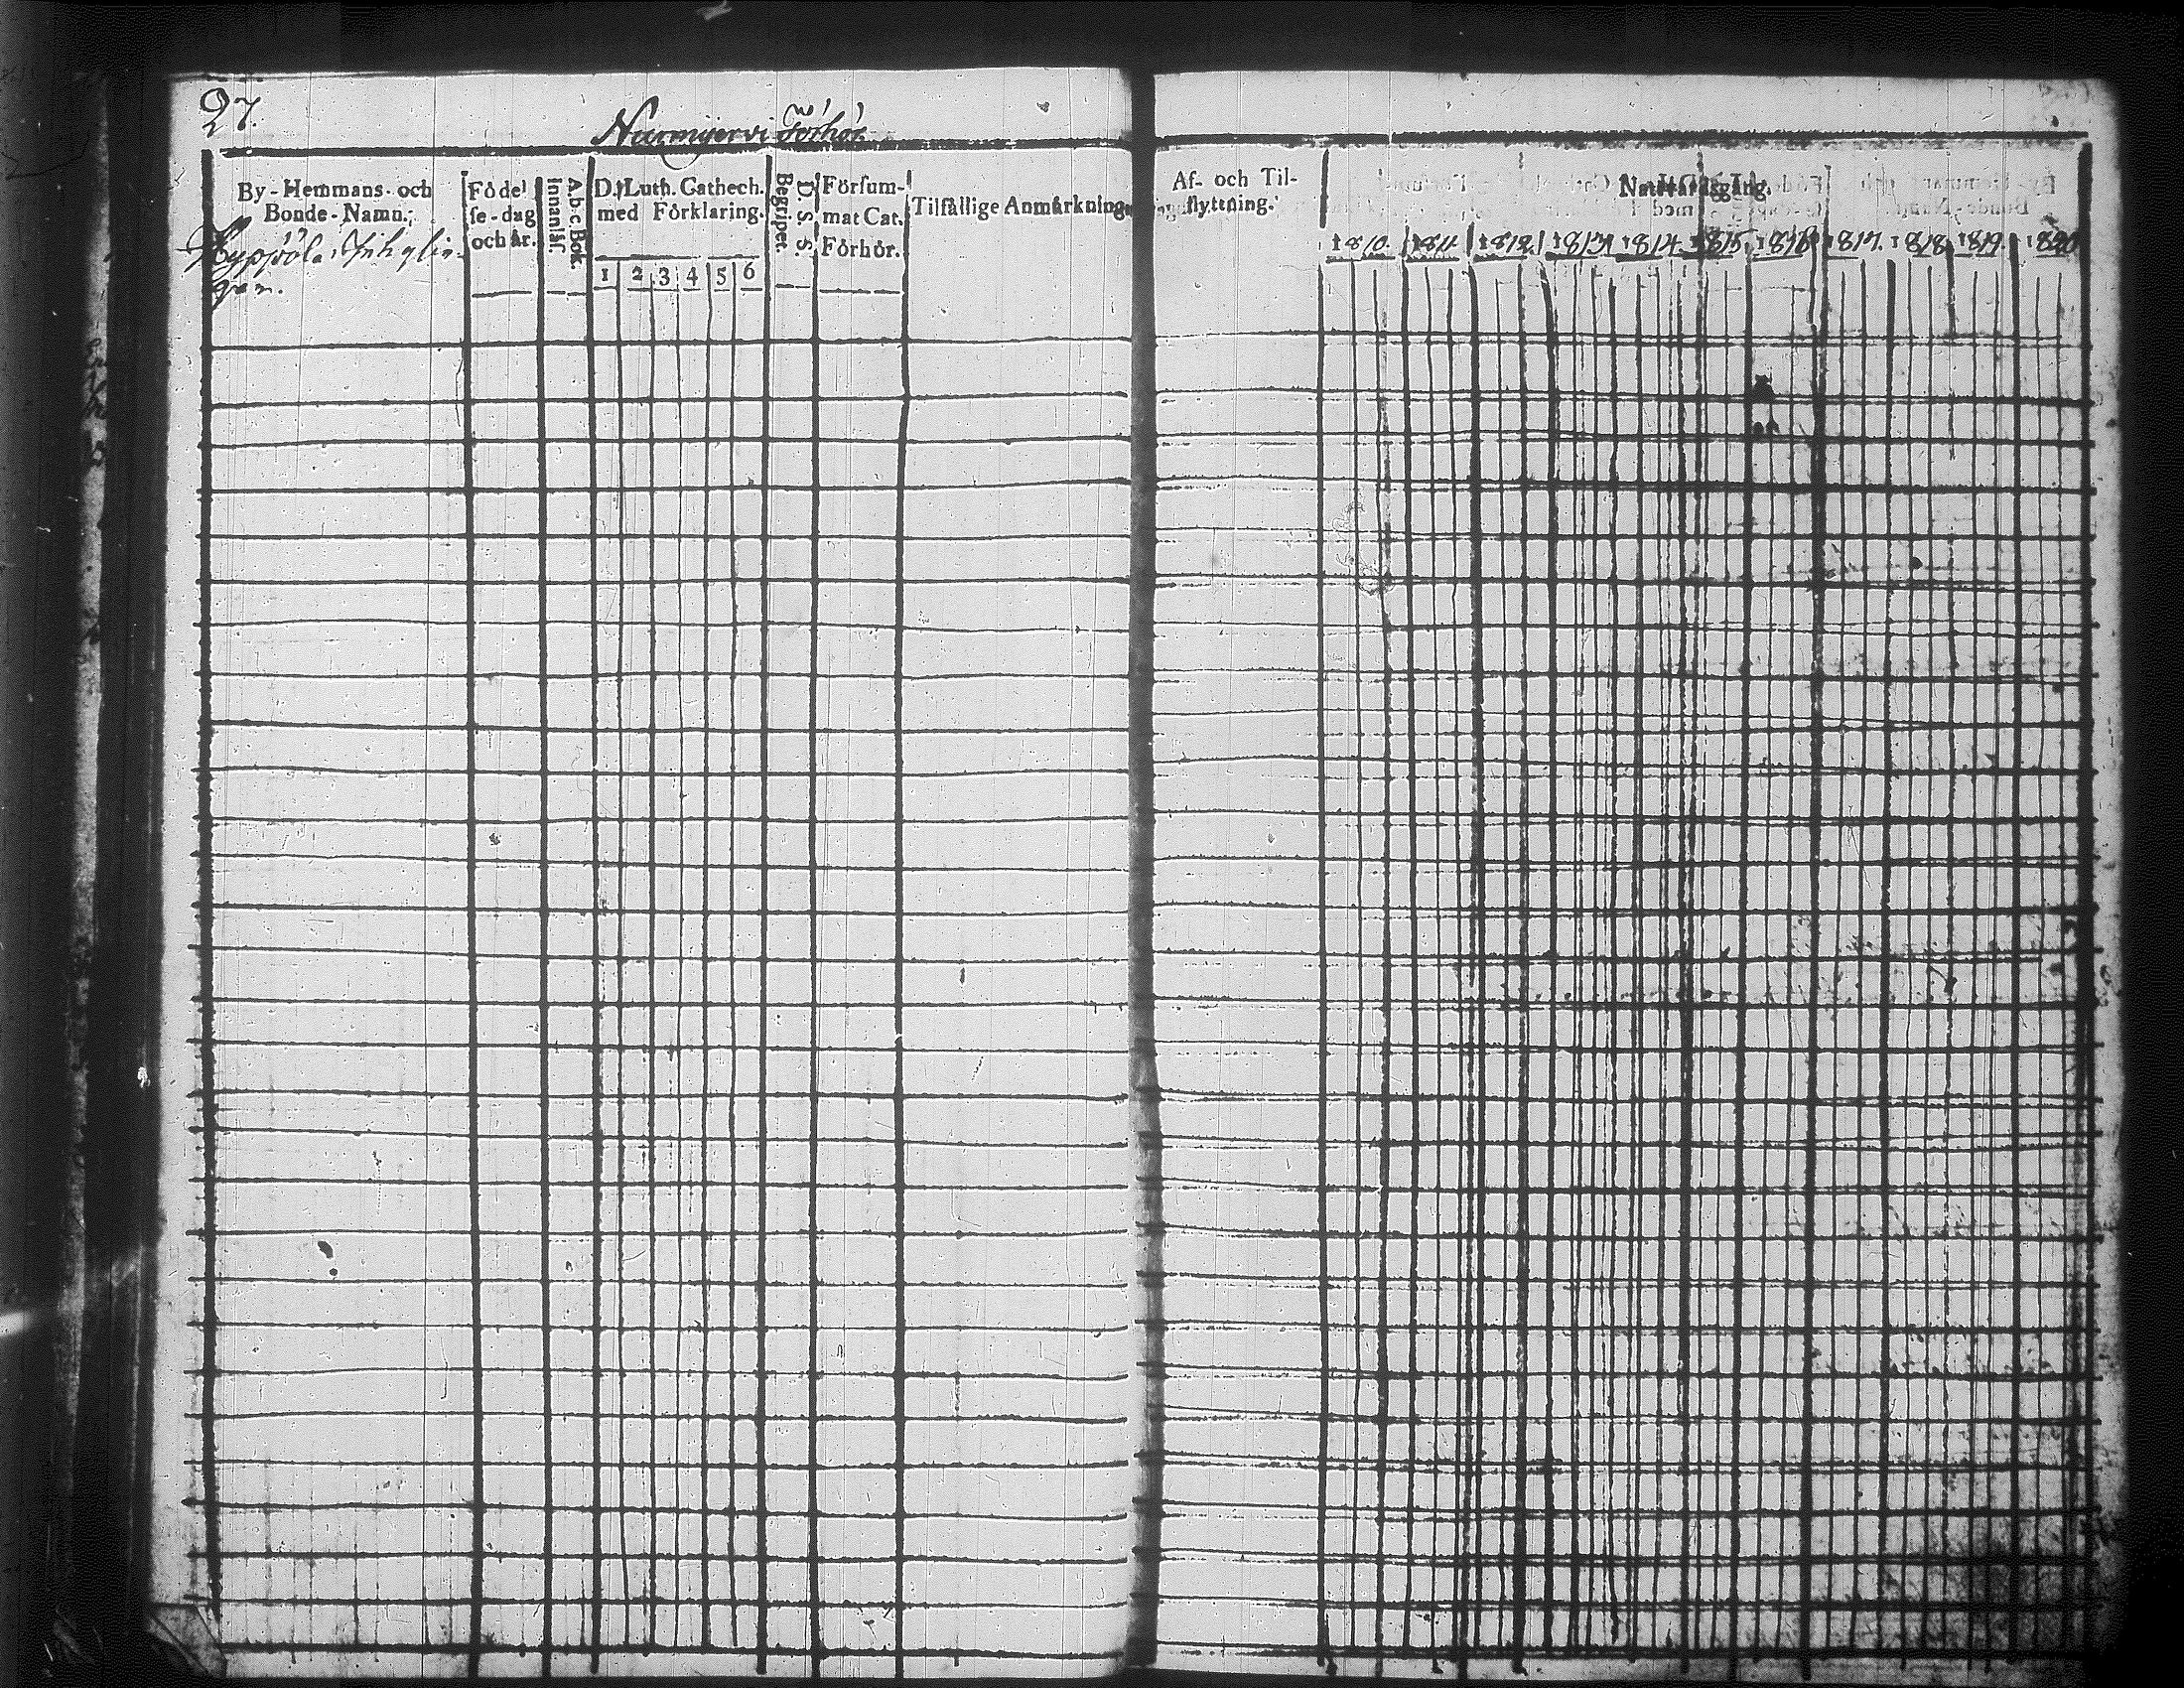 27.
Nurmijervi Förhör
By-Hemmans-och
Bonde-Namn.
Födel
se-dag
och år.
A.b.c Bok.
Innanläs.
D. Luth. Cathech.
med Förklaring.
1 2 3 4 5 6
D. S. S.
Begripet.
Försum-
mat Cat.
Förhör.
Tilfällige Anmärkning
Af- och Til-
flyttning.
Nattvardsgång.
1810. 1811. 1812. 1813. 1814. 1815. 1816. 1817. 1818. 1819. 1820.